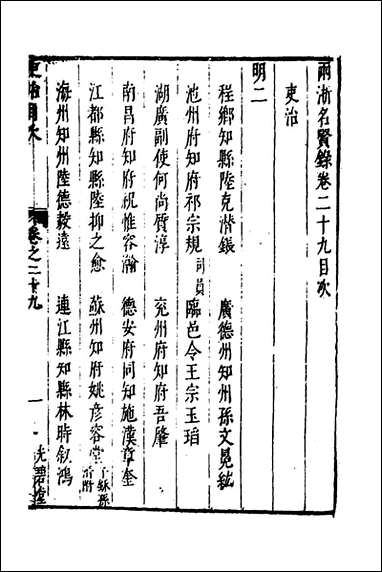 兩浙名賢錄卷二十九目次
吏治
明二
程鄉知縣陸克潛鋹 廣德州知州孫文冕紘
池州府知府祁宗規司員 臨邑令王宗玉瑁
湖廣副使何尚質淳 兖州府知府吾肇
南昌府知府祝惟容瀚 德安府同知施漢章奎
江都縣知縣陸抑之愈 蘇州知府姚彥容堂
海州知州陸德毅遠 連江縣知縣林時叙鴻
卷之二十九
一